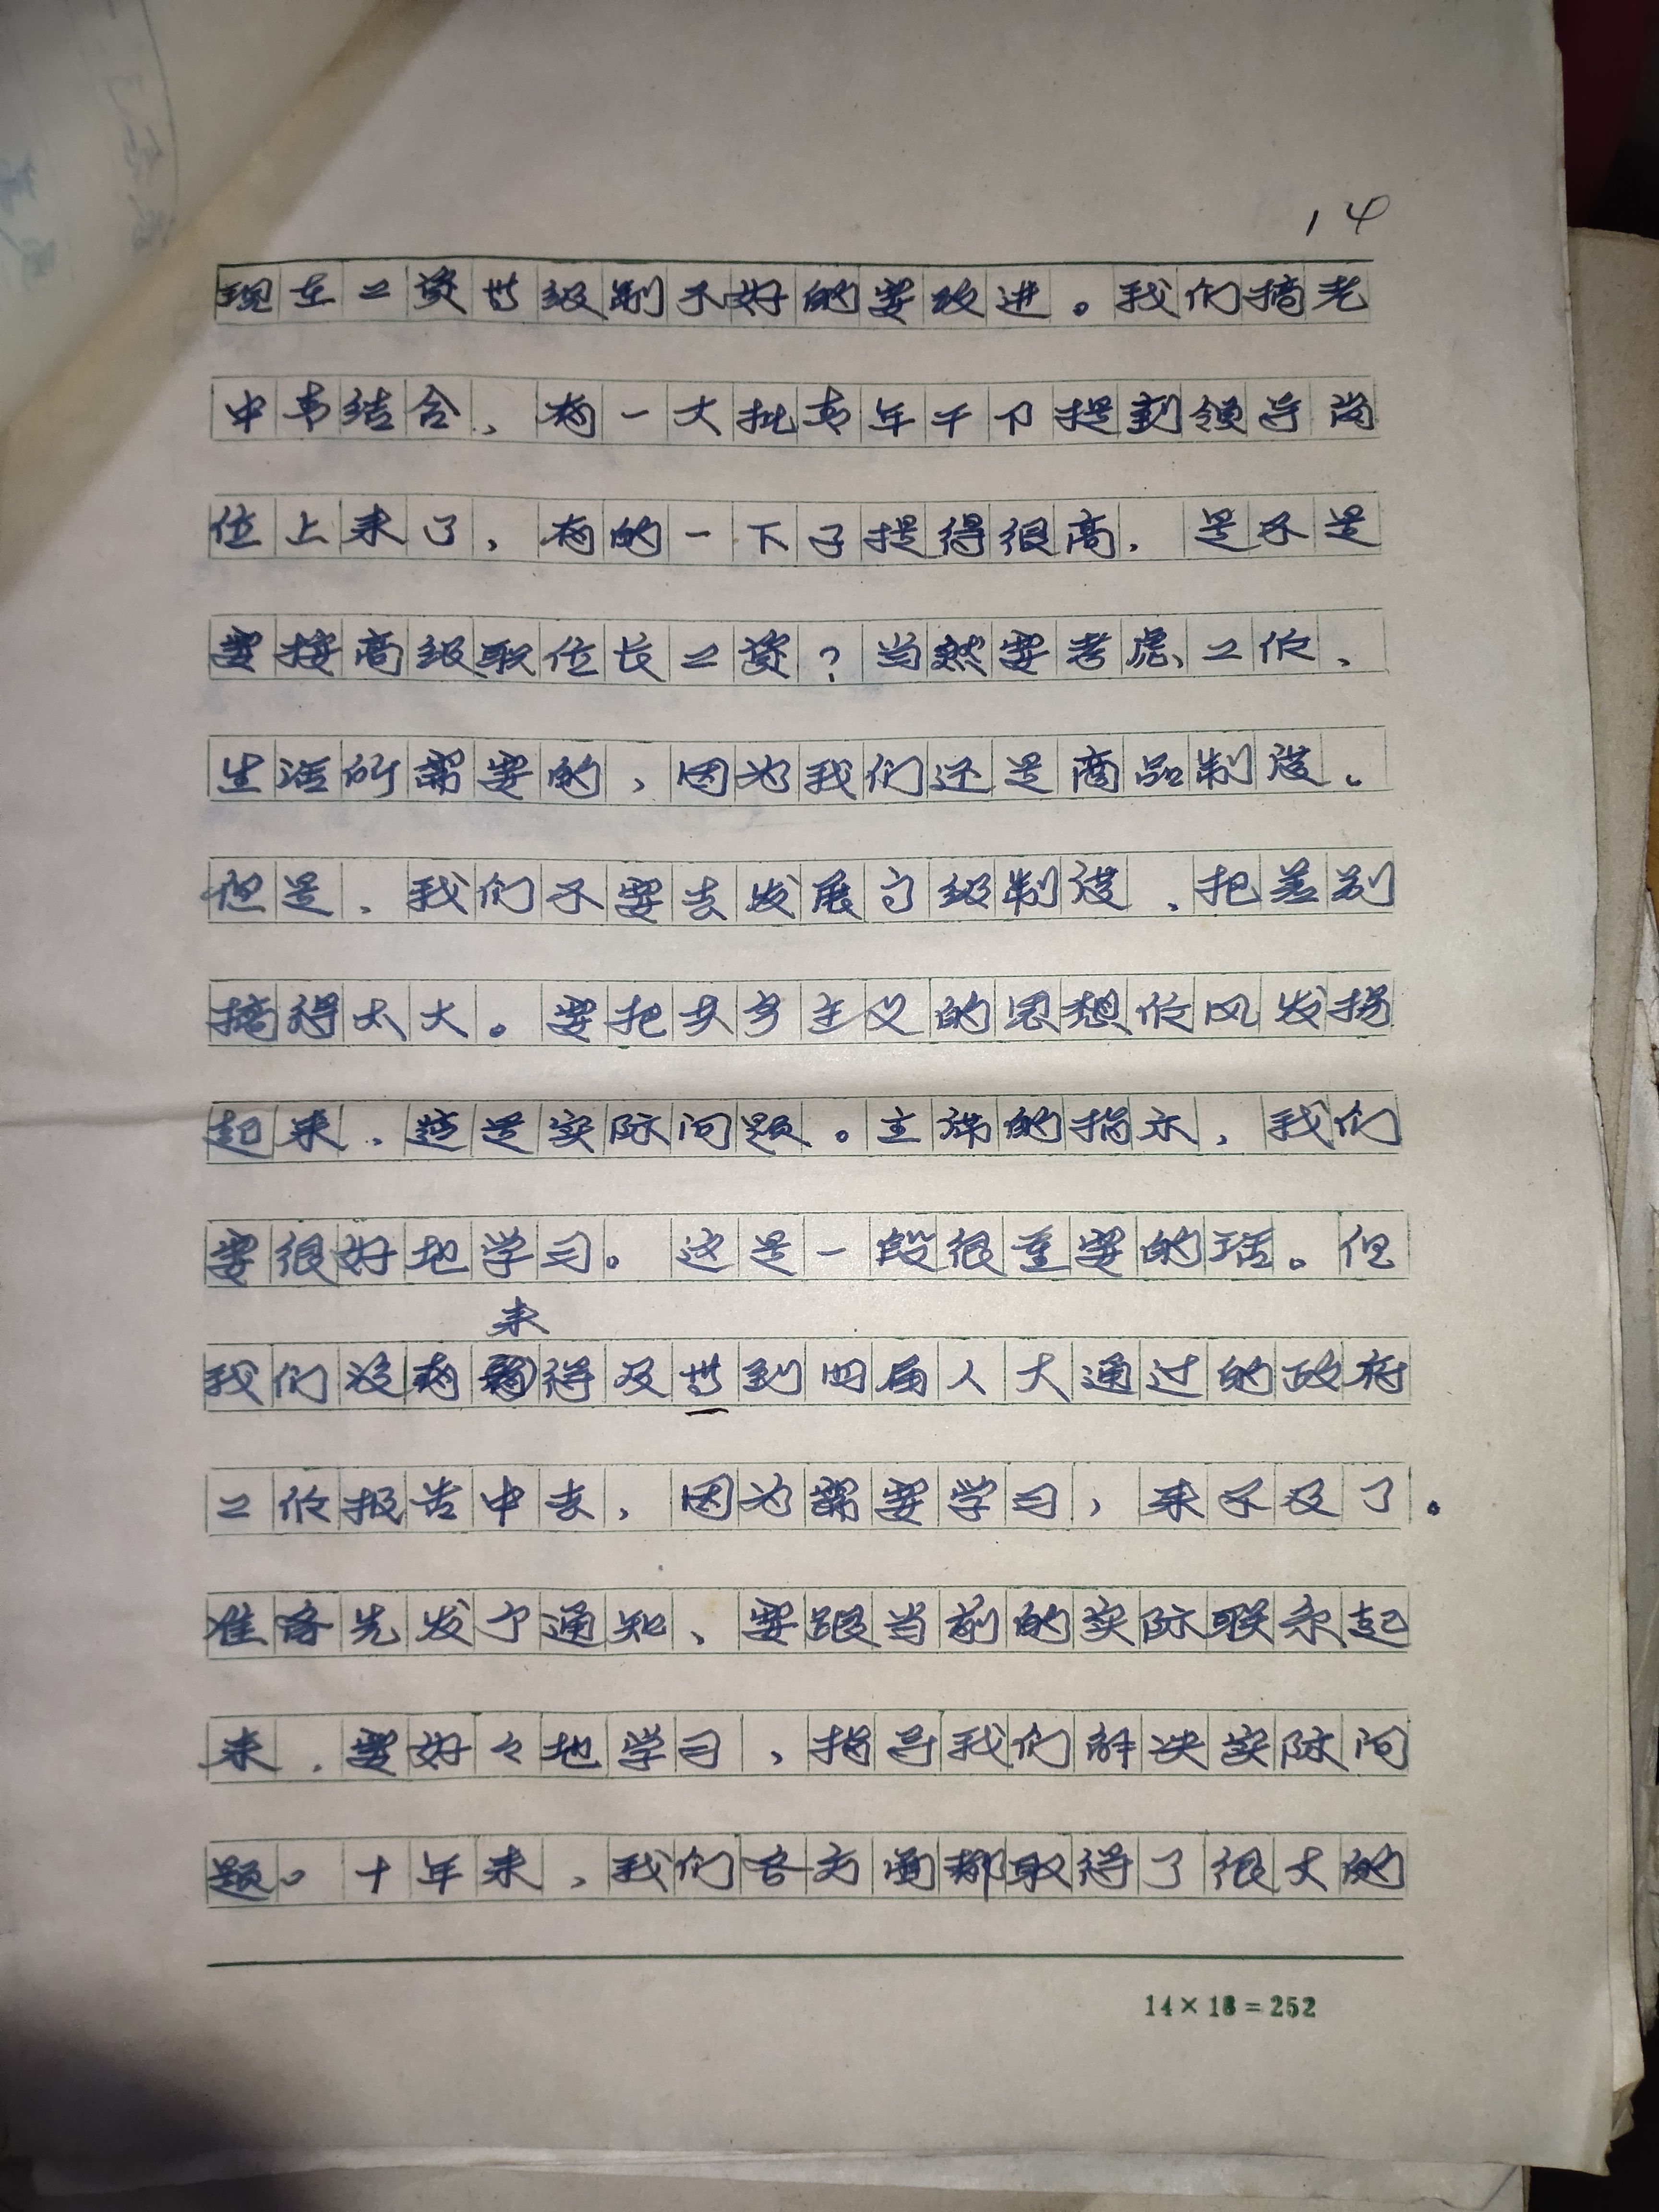 14
现在工资廿级制不好的要改进。我们搞老
中青结合、有一大批青年干卩提到领导岗
位上来了，有的一下子提得很高，是不是
要按高级职位长工资？当然要考虑工作、
生活所需要的，因为我们还是商品制度。
但是，我们不要去发展等级制度，把差别
搞得太大。要把共产主义的思想作风发扬
起来，这是实际问题。主席的指示，我们
要很好地学习。这是一段很重要的话。但
来
我们没有得及廿到四届人大通过的政府
工作报告中去，因为需要学习，来不及了。
准备先发个通知、要跟当前的实际联系起
来，要好々地学习，指导我们解决实际问
题。十年来，我们各方面都取得了很大的
14×18=252